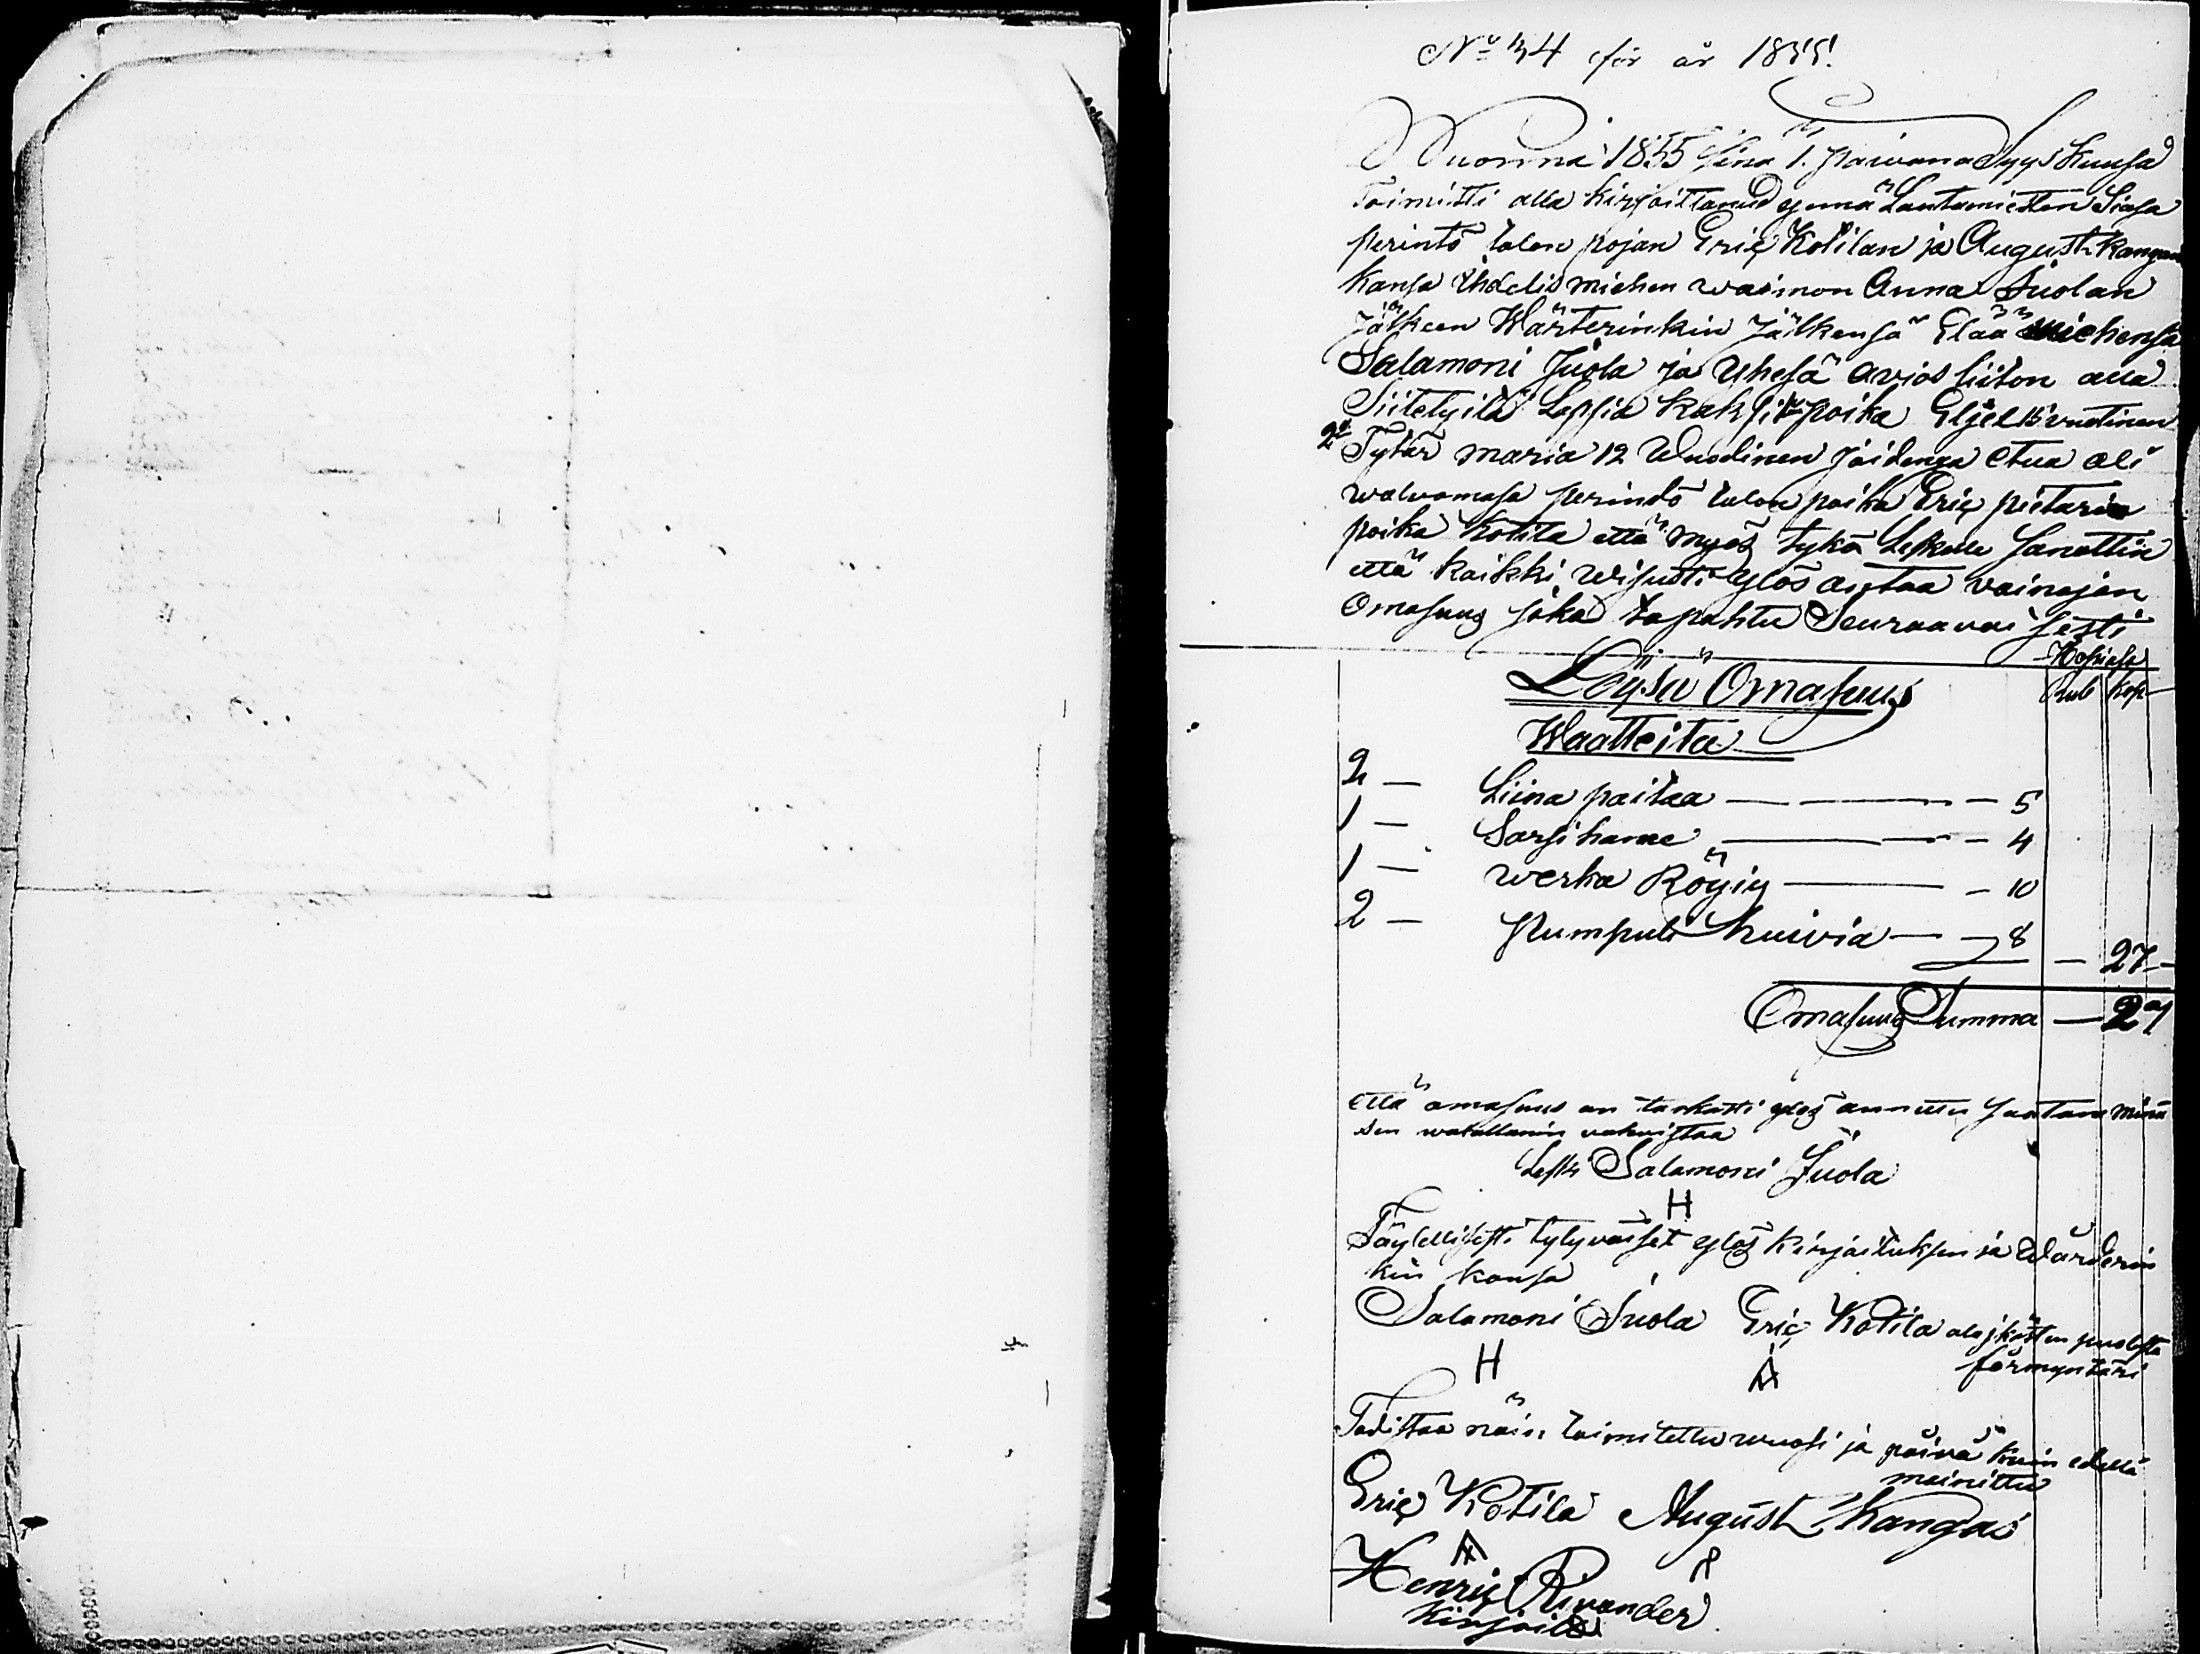 No 34 för år 1855.
Wuonna 1855 sina 1. päivana Syys kuusa
Toimitti alla kirjoittanud ynnä Lautamiesten Siasa
perintö talon pojan Eric Kotilan ja August Kangan
kansa Ihdelis miehen waimon Anna Juolan
jälkeen Wärterinkin jälkensä Elää miehensä
Salamoni Juola ja yhesä avios liiton alla
Siitetyilä Lapsia kaksi 1 poika Eljel 15 vuotinen
2 Tytär maria 12 Wuodinen joidenga etua oli
walvomasa perindö talon poika Eric pietarin
poika Kotila että myös tykö Leskelle sanottin
että kaikki wisusti ylös antaa vainajan
Omasuus joka tapahtu Seuraavaisesti
Hopiasa
Rub kop
Löysä Omasuus
Waatteita
2 — Liina paitaa — 5
1 — Sarsi hame — 4
1 — werka Röyiy — 10
2 — Pumpuli huivia — 8 — 27 —
Omasuus Summa — 27
että omasuus on tarkasti ylös annettu saatan minä
sen walallanin vahvistaa
Leski Salamoni Juola
H
Täydellisesti tytyväiset ylös kirjoituksen ja Wärderin
kin kansa
Salamoni Juola Eric Kotila alaikästen puolesta
H A förmyntäri
Todistaa näin toimitettu wuosi ja päivä kuin edellä
mainittu
Eric Kotila August Kangas
A
Henric Rivander
kirjoitti